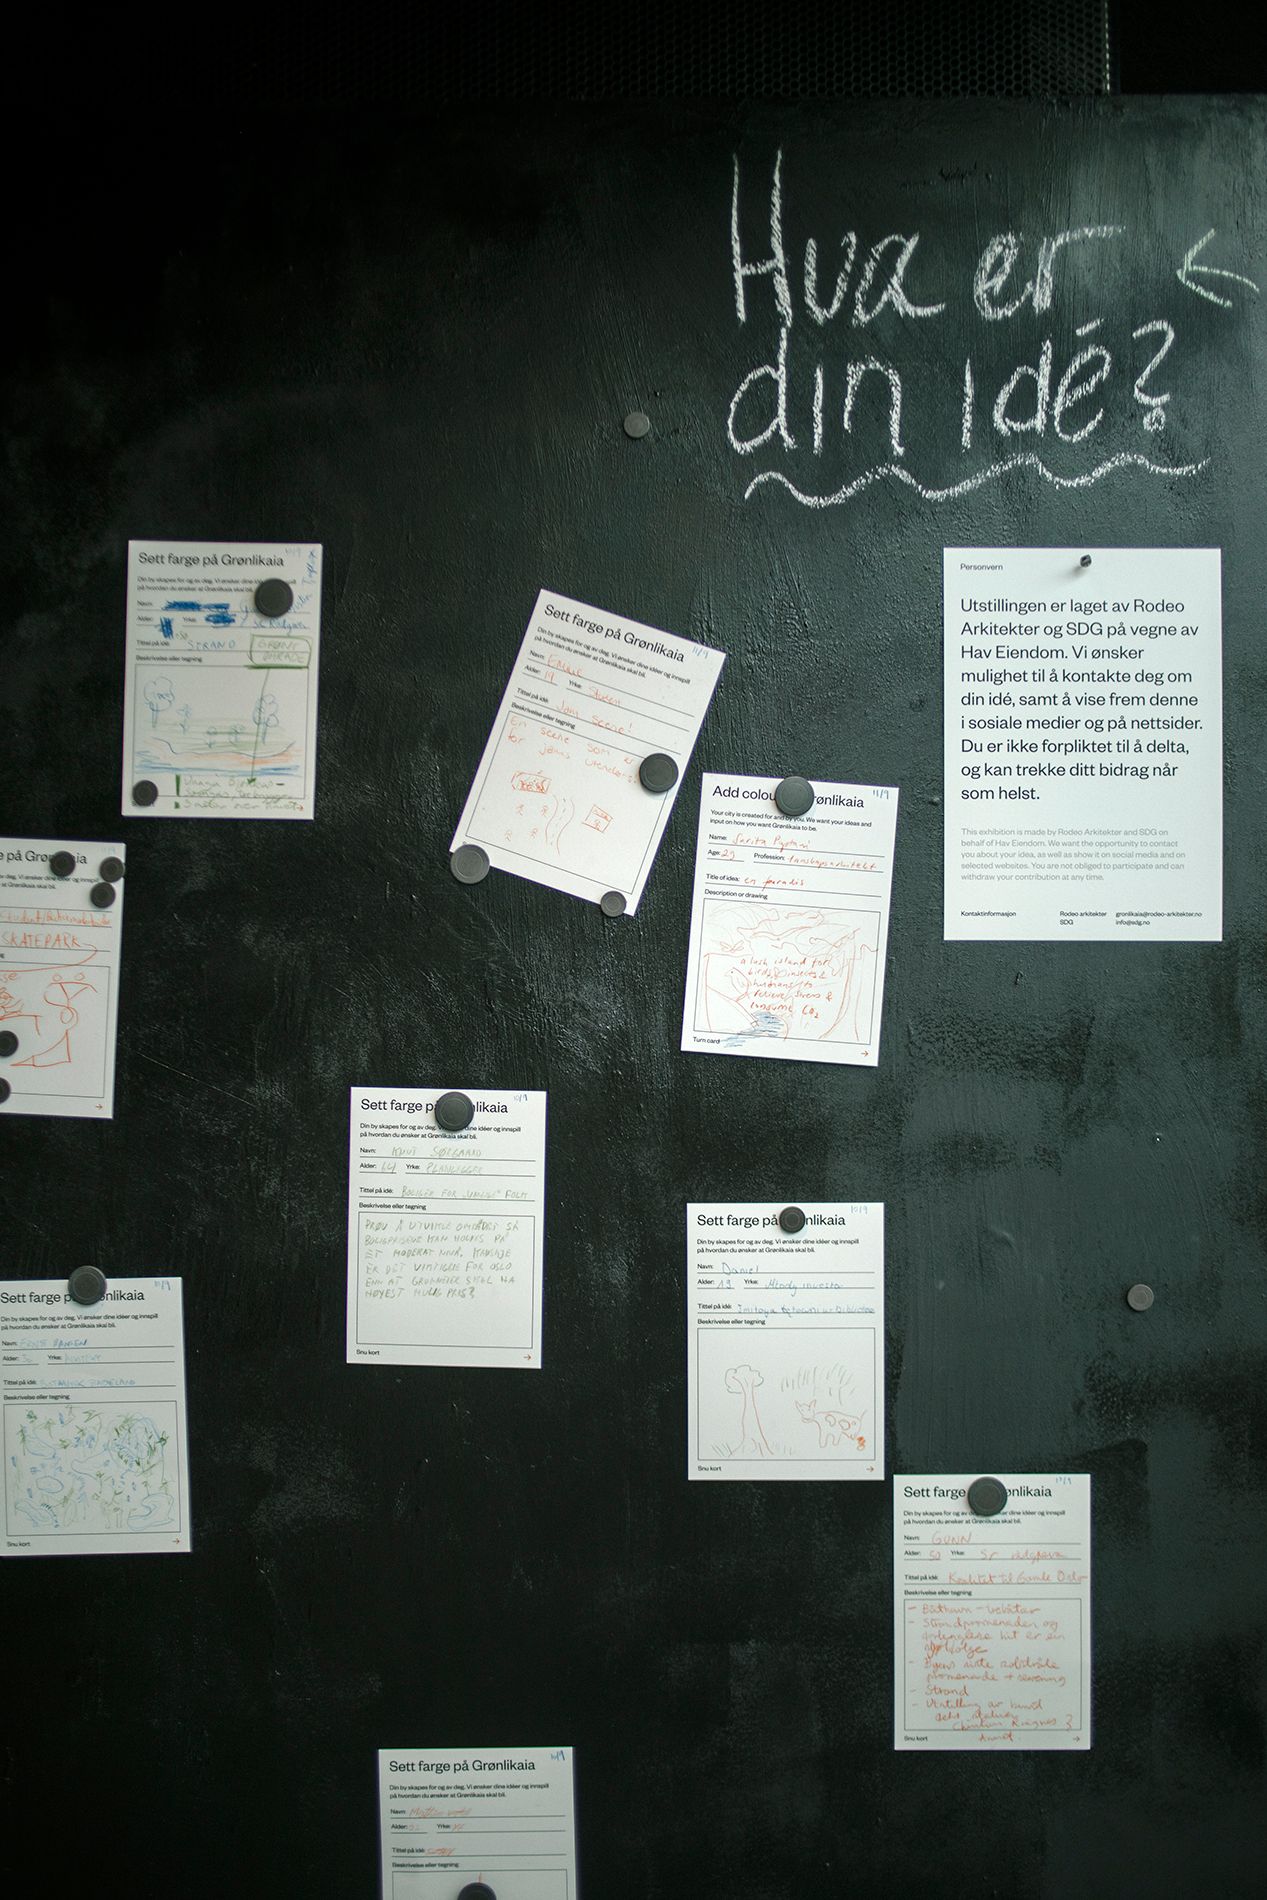 Hva er ←
din idé?
Sett farge på Grønlikaia
10/9
Din by skapes for og av deg. Vi ønsker dine idéer og innspill
på hvordan du ønsker at Grønlikaia skal bli.
Navn:
Alder: Yrke:
Tittel på idé: STRAND GRØNT
OMRÅDE
Beskrivelse eller tegning
Sett farge på Grønlikaia
11/9
Din by skapes for og av deg. Vi ønsker dine idéer og innspill
på hvordan du ønsker at Grønlikaia skal bli.
Navn: EMILIE
Alder: 19 Yrke: Student
Tittel på idé: Jam scene!
Beskrivelse eller tegning
En scene som er
for jams utendørs
Personvern
Utstillingen er laget av Rodeo
Arkitekter og SDG på vegne av
Hav Eiendom. Vi ønsker
mulighet til å kontakte deg om
din idé, samt å vise frem denne
i sosiale medier og på nettsider.
Du er ikke forpliktet til å delta,
og kan trekke ditt bidrag når
som helst.
This exhibition is made by Rodeo Arkitekter and SDG on
behalf of Hav Eiendom. We want the opportunity to contact
you about your idea, as well as show it on social media and on
selected websites. You are not obliged to participate and can
withdraw your contribution at any time.
Kontaktinformasjon Rodeo arkitekter gronlikaia@rodeo-arkitekter.no
SDG info@sdg.no
Add colou Grønlikaia
11/9
Your city is created for and by you. We want your ideas and
input on how you want Grønlikaia to be.
Name: Sarita
Age: 29 Profession: landskapsarkitekt
Title of idea: en paradis
Description or drawing
a lush island for
birds, insects &
humans to
relieve stress &
consume CO2
Turn card →
e på Grøn aia
SKATEPARK
→
Sett farge på nlikaia
10/9
Din by skapes for og av deg. Vi ønsker dine idéer og innspill
på hvordan du ønsker at Grønlikaia skal bli.
Navn: KNUT SØRGAARD
Alder: 64 Yrke: PLANLEGGER
Tittel på idé: BOLIGER FOR "VANLIGE" FOLK
Beskrivelse eller tegning
PRØV Å UTVIKLE OMRÅDET SÅ
BOLIGPRISENE KAN HOLDES PÅ
ET MODERAT NIVÅ. KANSKJE
ER DET VIKTIGERE FOR OSLO
ENN AT GRUNNEIER SKAL HA
HØYEST MULIG PRIS?
Snu kort →
Sett farge på nlikaia
10/9
Din by skapes for og av deg. Vi ønsker dine idéer og innspill
på hvordan du ønsker at Grønlikaia skal bli.
Navn: Daniel
Alder: 19 Yrke:
Tittel på idé:
Beskrivelse eller tegning
Snu kort →
Sett farge på Grønlikaia
10/9
Din by skapes for og av deg. Vi ønsker dine idéer og innspill
på hvordan du ønsker at Grønlikaia skal bli.
Navn: HANSEN
Alder: Yrke:
Tittel på idé: BOTANISK BADELAND
Beskrivelse eller tegning
Snu kort →
Sett farge ønlikaia
Din by skapes for og av deg. Vi ønsker dine idéer og innspill
på hvordan du ønsker at Grønlikaia skal bli.
Navn: GUNN
Alder: 50 Yrke: Sr rådgiver
Tittel på idé: Kvalitet til Gamle Oslo
Beskrivelse eller tegning
- Båthavn -
- Strandpromenaden og
hit er ein
- Byens siste solstråle
promenade + servering
- Strand
- Utstilling av
Christian Ringnes
Snu kort →
Sett farge på Grønlikaia
10/9
Din by skapes for og av deg. Vi ønsker dine idéer og innspill
på hvordan du ønsker at Grønlikaia skal bli.
Navn:
Alder: Yrke:
Tittel på idé:
Beskrivelse eller tegning